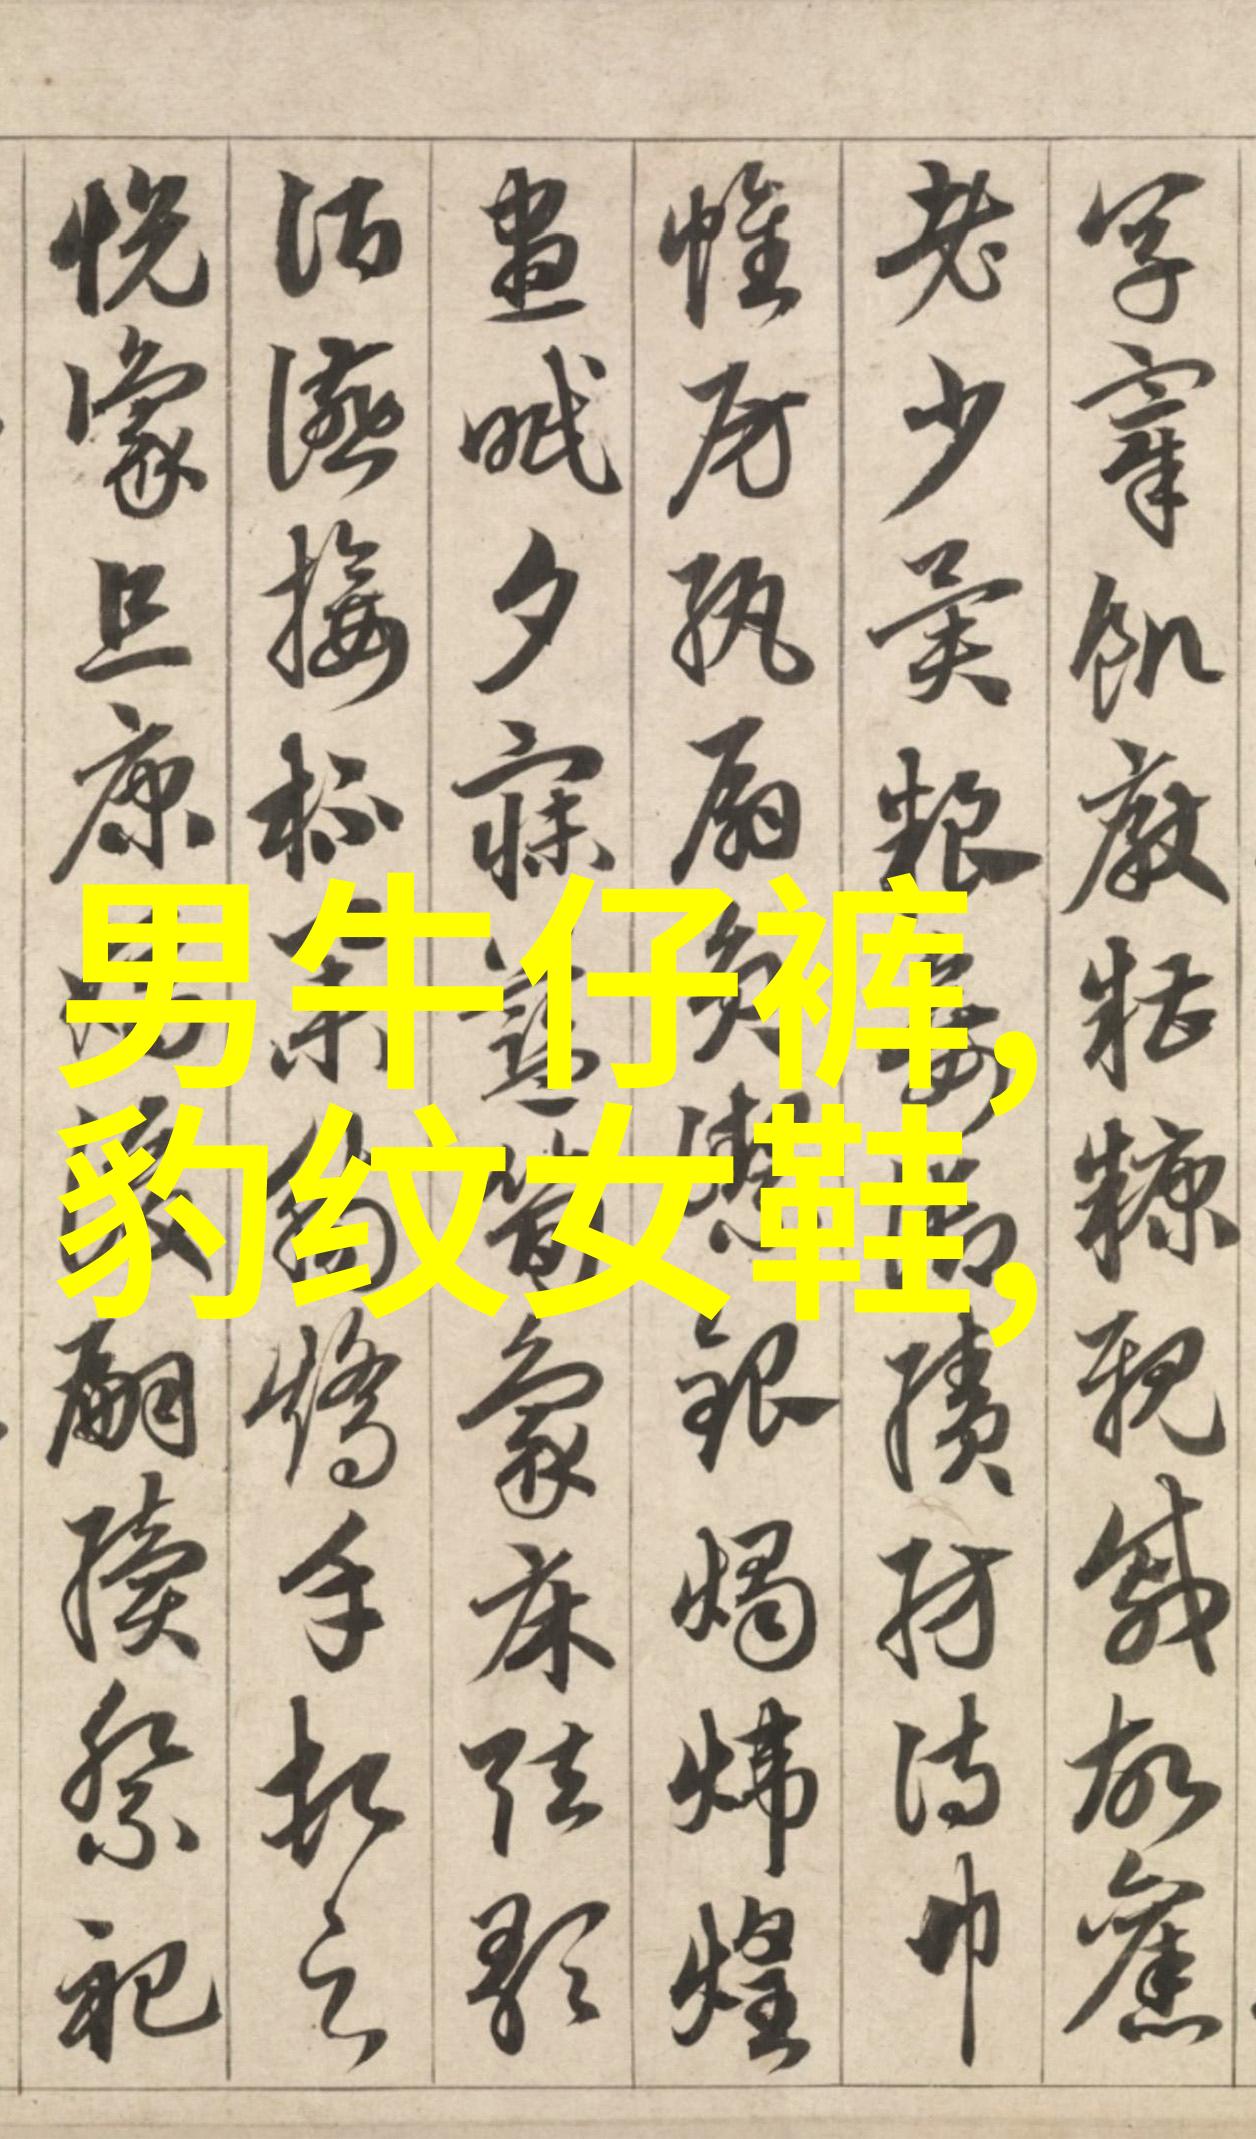 男牛仔裤,
豹纹女鞋,
宰飢厭糟糠親戚故舊
老少異粮妾御績紡侍巾
帷房紈扇員潔銀燭煒煌
晝眠夕寐藍笋象床弦歌
酒讌接杯舉觴矯手頓足
悅豫且康嫡後嗣續祭祀